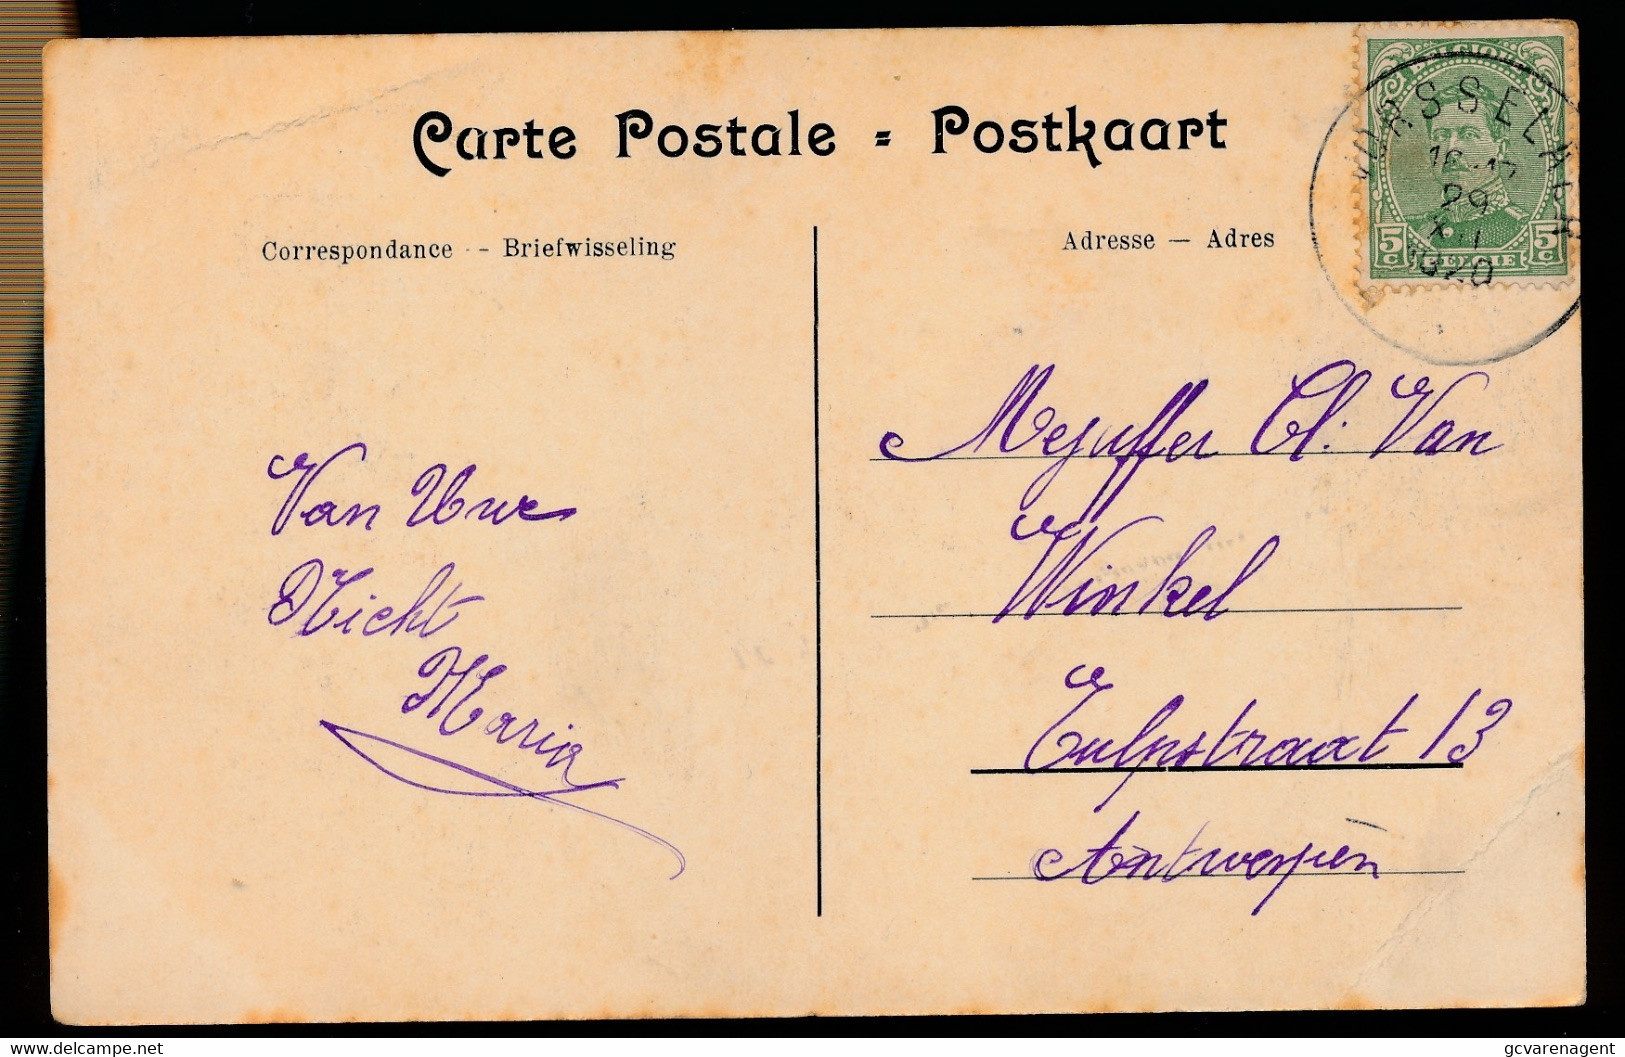 Carte Postale = Postkaart
Correspondance - - Briefwisseling
Adresse — Adres
VORSSELAER
29
XII
1920
BELGIE
5 C
5 C
Van Uwe
Nicht
Maria
Mejuffer Cl. Van
Winkel
Tulpstraat 13
Antwerpen
delcampe.net
gcvarenagent